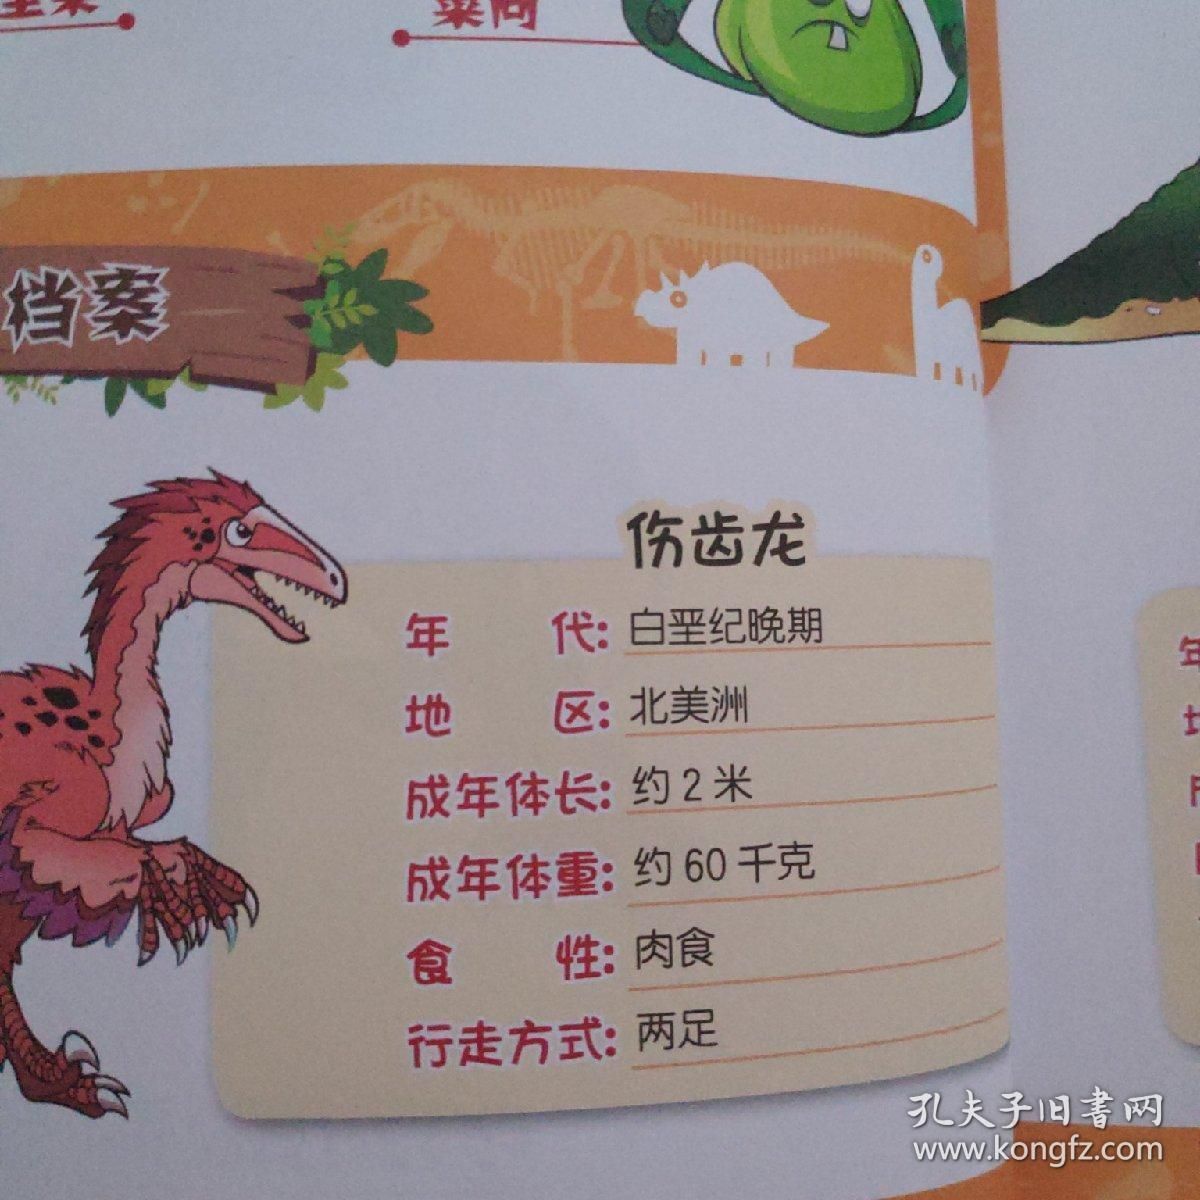 菜问
档案
伤齿龙
年 代: 白垩纪晚期
地 区: 北美洲
成年体长: 约 2 米
成年体重: 约 60 千克
食 性: 肉食
行走方式: 两足
孔夫子旧書网
www.kongfz.com